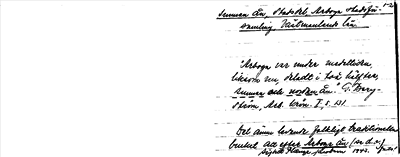 Sunnan Ån, stadsdel, Arboga stadsför-
samling, Västmanlands län.
"Arboga var under medeltiden,
liksom nu, deladt i två hälfter,
sunnan och nordan ån." G. Berg-
ström, Arb. krön. I, s. 131.
Det ännu levande folkligt traditionella
bruket att efter Arboga ån (se d.o.)
1943.